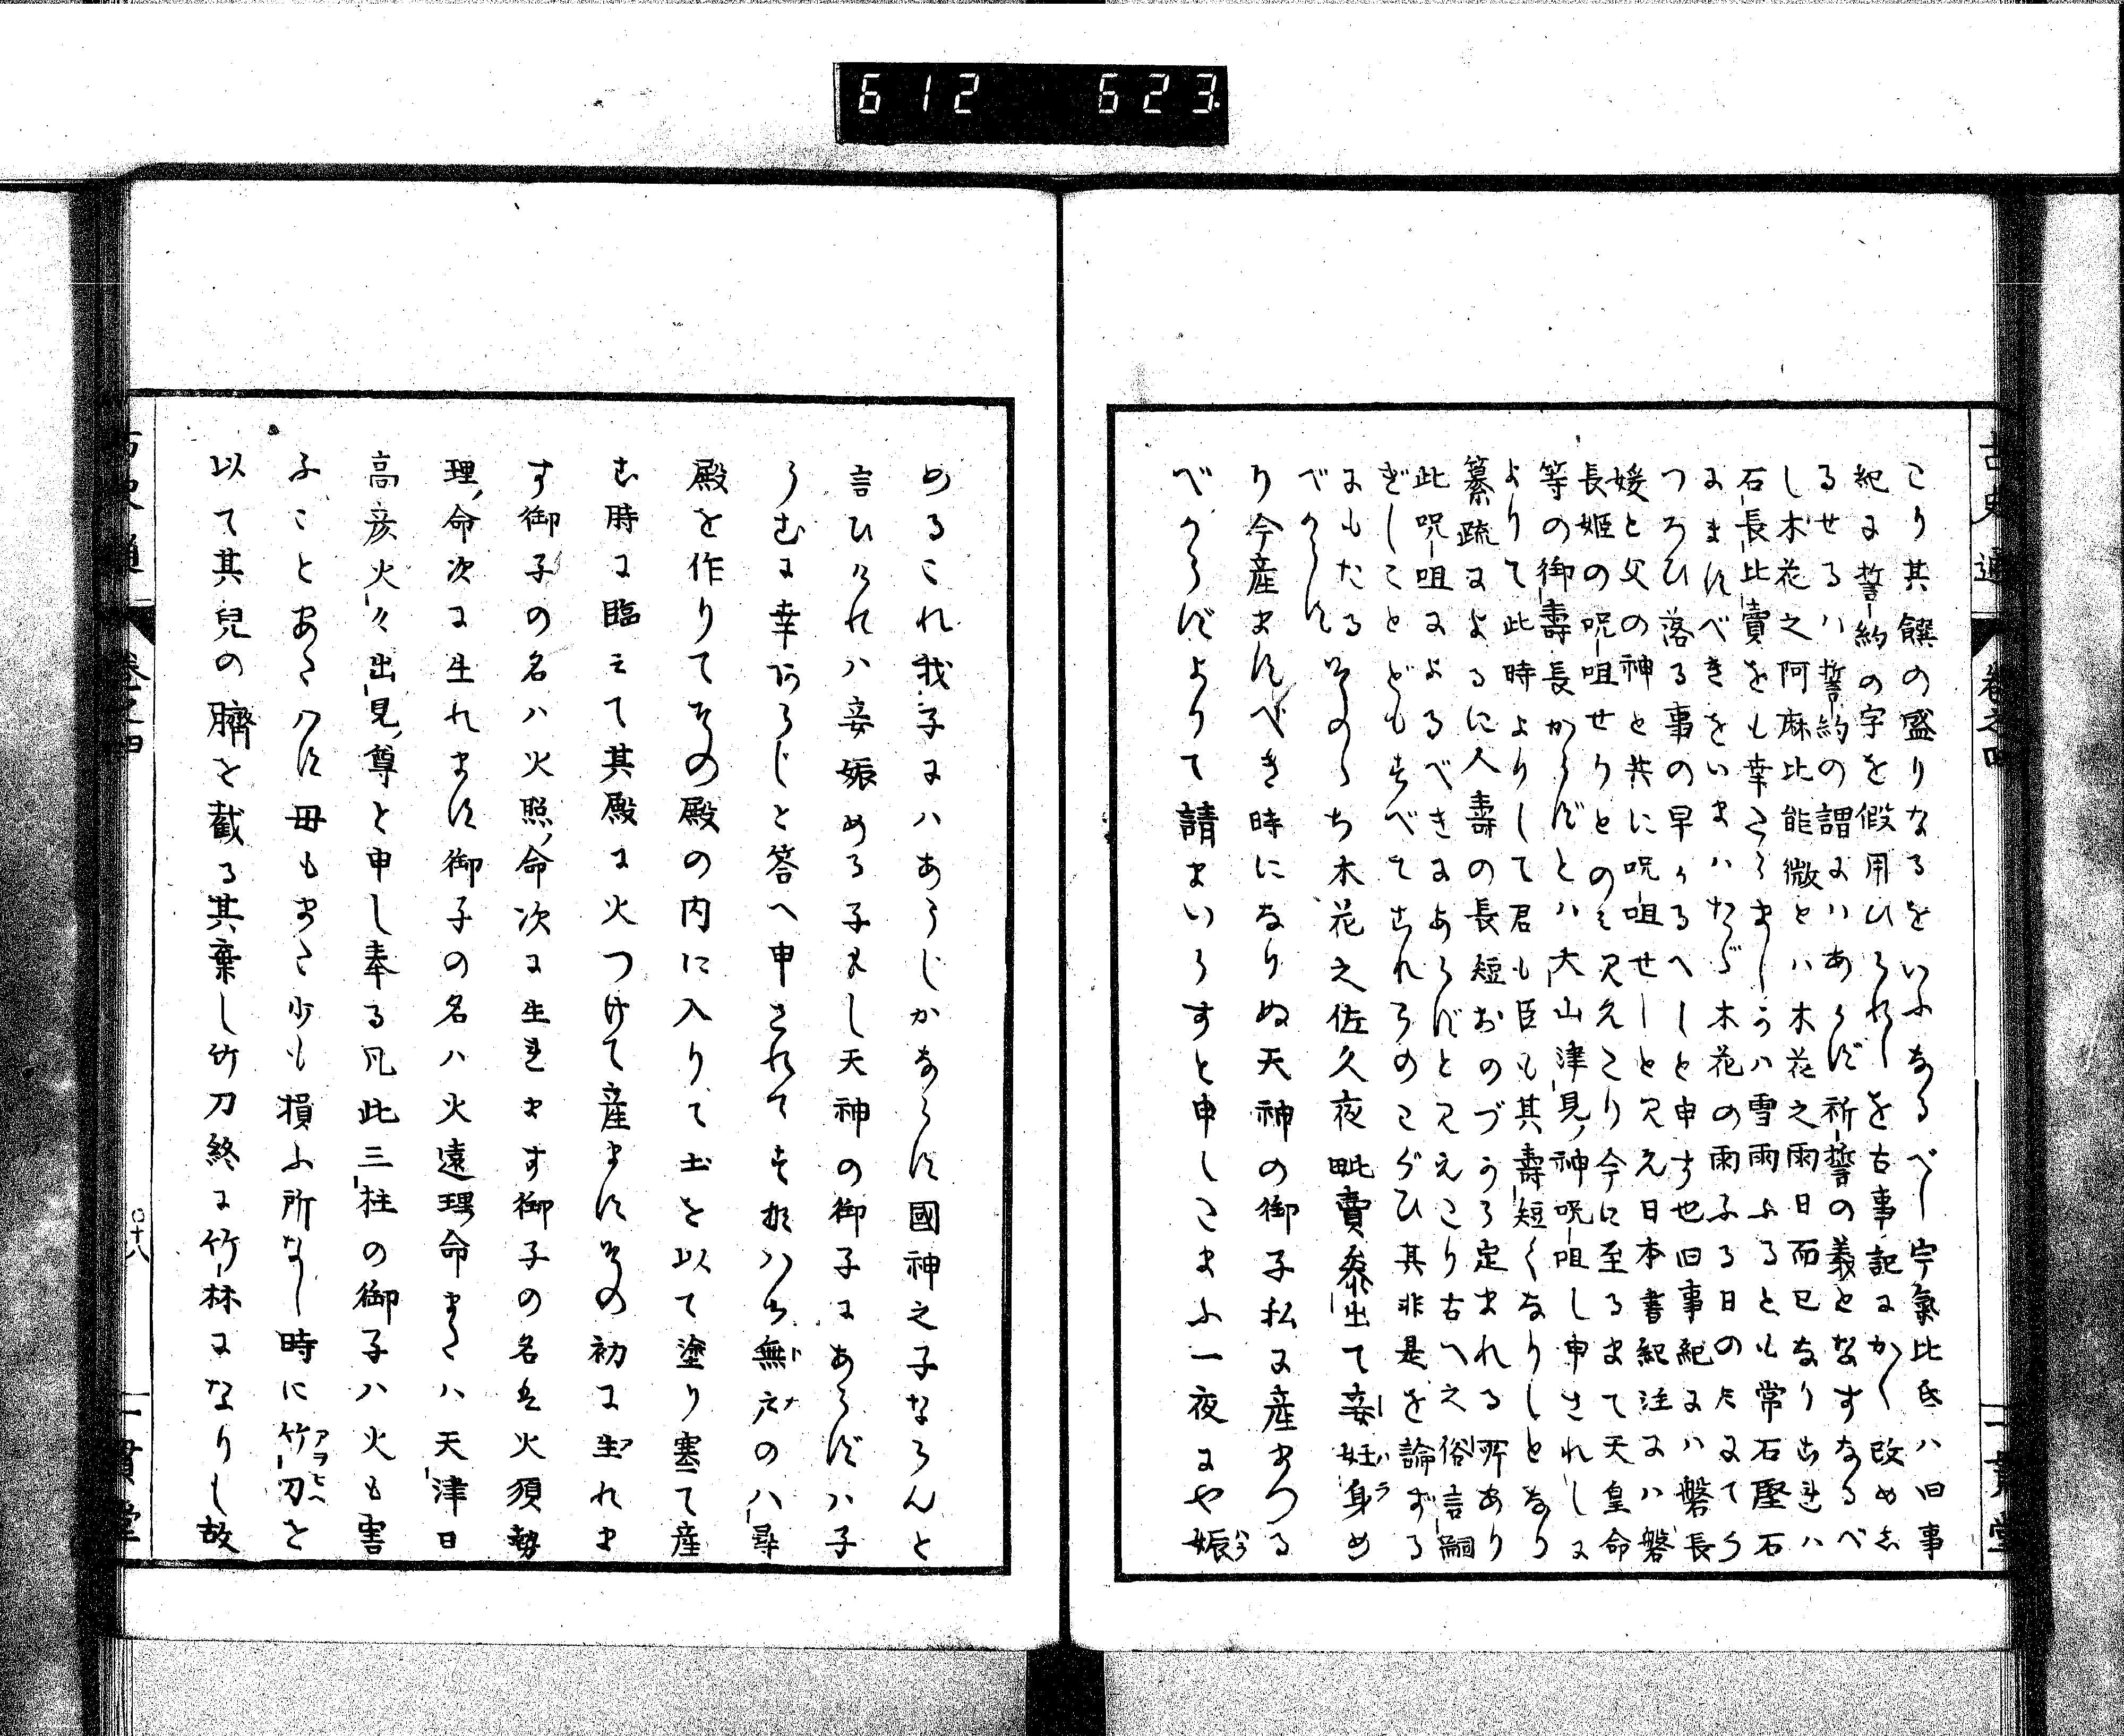 612 623
古史通 卷之四 一貫堂
こり其饌の盛りなるをいふなるべし宇氣比氏ハ旧事
紀に誓約の字を假用ひられしを古事記にかく改め志
るせるハ誓約の謂にハあらず祈誓の義となすなるべ
し木花之阿麻比能微とハ木花之雨日而已なりされハ
石長比賣をも幸さらましうハ雪雨ふるとも常石堅石
にますべきをいまハたゞ木花の雨ふる日のほにてう
つろひ落る事の早かるへしと申す也旧事紀にハ磐長
媛と父の神と共に呪咀せしと見え日本書紀注にハ磐
長姫の呪咀せりとのミ見えたり今に至るまて天皇命
等の御壽長からずとハ大山津見神呪咀し申されしに
よりて此時よりして君も臣も其壽短くなりしとなり
纂疏によるに人壽の長短おのづから定まれる所あり
此呪咀によるべきにあらずと見えたり古へ之俗言嗣
ぎしことどもすべてこれらのたぐひ其非是を論ずる
にもたるそのゝち木花之佐久夜毗賣參出て妾妊身め
べからす
り今産ますべき時になりぬ天神の御子私に産まつる
べからずよりて請まいらすと申したまふ一夜にや娠
めるこれ我子にハあらじかならす國神之子ならんと
言ひけれハ妾娠める子もし天神の御子にあらずハ子
うむに幸あらじと答へ申されてすなハち無戸の八尋
殿を作りてその殿の内に入りて土を以て塗り塞て産
む時に臨ミて其殿に火つけて産ますその初に生れま
す御子の名ハ火照命次に生れます御子の名を火須勢
理命次に生れます御子の名ハ火遠理命またハ天津日
高彦火々出見尊と申し奉る凡此三柱の御子ハ火も害
ふことあたハす母もまた少も損ふ所なし時に竹刀を
以て其兒の臍を截る其棄し竹刀終に竹林になりし故
古史通 卷之四 〇十八 一貫堂